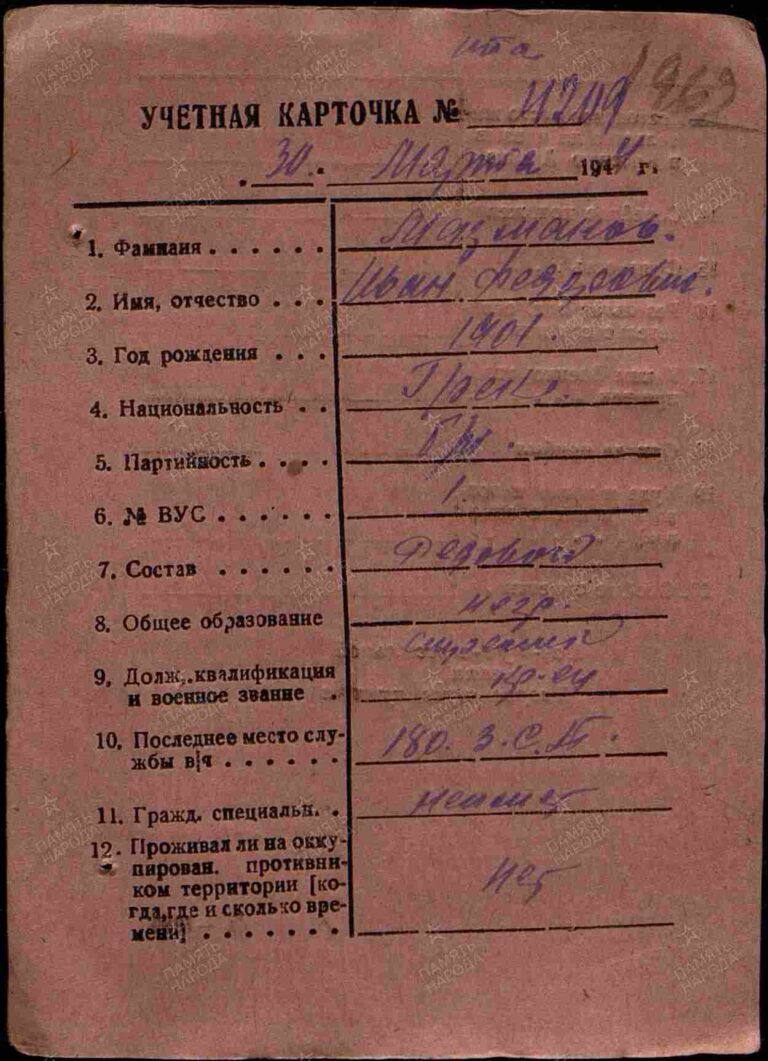 1963
УЧЕТНАЯ КАРТОЧКА № 4209
30. Марта 1944 г.
1. Фамилия . . . . . . Мазманов.
2. Имя, отчество . . . Иван Федорович.
3. Год рождения . . . 1901.
4. Национальность . . Грек.
5. Партийность . . . . б/п.
6. № ВУС . . . . . . 1
7. Состав . . . . . . Рядовой
8. Общее образование негр.
9. Долж., квалификация стрелок
и военное звание . кр-ец
10. Последнее место слу- 180. З.С.П.
жбы в|ч . . . . . .
11. Гражд. специальн. . неимеет
12. Проживал ли на окку-
пирован. противни-
ком территории [ко- Нет
гда,где и сколько вре-
мени] . . . . . . .
ПАМЯТЬ НАРОДА